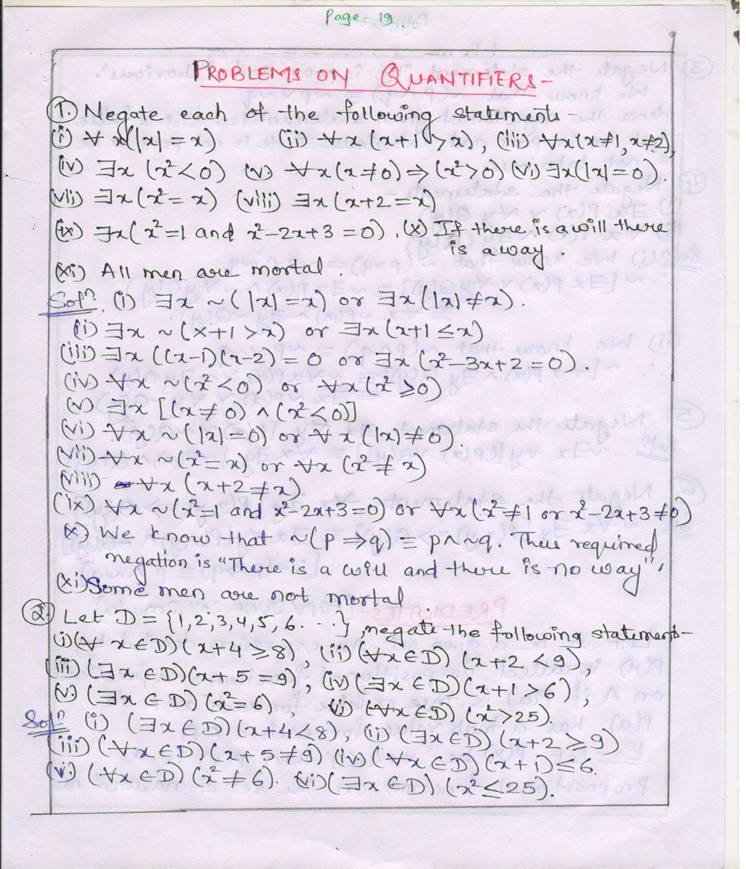 Page - 19
PROBLEMS ON QUANTIFIERS -
① Negate each of the following statements -
(i) ∀ x(|x| = x) (ii) ∀x (x+1 > x), (iii) ∀x(x≠1, x≠2),
(iv) ∃x (x²<0) (v) ∀x(x≠0) ⇒ (x²>0) (vi) ∃x(|x|=0).
(vii) ∃x(x²= x) (viii) ∃x (x+2 = x)
(ix) ∃x(x²=1 and x²-2x+3 = 0). (x) If there is a will there
is a way.
(xi) All men are mortal
Solⁿ. (i) ∃x ~(|x|=x) or ∃x(|x| ≠ x).
(ii) ∃x ~(x+1 > x) or ∃x(x+1 ≤ x)
(iii) ∃x ((x-1)(x-2) = 0 or ∃x (x²-3x+2 = 0).
(iv) ∀x ~(x²<0) or ∀x(x² ≥ 0)
(v) ∃x [(x ≠ 0) ∧ (x²<0)]
(vi) ∀x ~(|x|=0) or ∀ x (|x| ≠ 0).
(vii) ∀x ~(x²= x) or ∀x (x² ≠ x)
(viii) ∀x (x+2 ≠ x)
(ix) ∀x ~(x²=1 and x²-2x+3=0) or ∀x(x²≠1 or x²-2x+3≠0)
(x) We know that ~(p ⇒ q) ≡ p∧~q. Thus required
negation is "There is a will and there is no way".
(xi) Some men are not mortal.
② Let D = {1,2,3,4,5,6. . . .}, negate the following statement-
(i)(∀ x∈D)(x+4 ≥ 8), (ii) (∀x∈D) (x+2 < 9),
(iii) (∃x∈D)(x+5 = 9), (iv) (∃x∈D)(x+1 > 6),
(v) (∃x ∈ D)(x²=6), (vi) (∀x∈D) (x²>25)
Solⁿ (i) (∃x∈D)(x+4<8), (ii) (∃x∈D) (x+2 ≥ 9)
(iii) (∀x∈D) (x+5 ≠ 9) (iv) (∀x∈D)(x+1) ≤ 6.
(v) (∀x∈D) (x² ≠ 6). (vi) (∃x∈D) (x² ≤ 25).